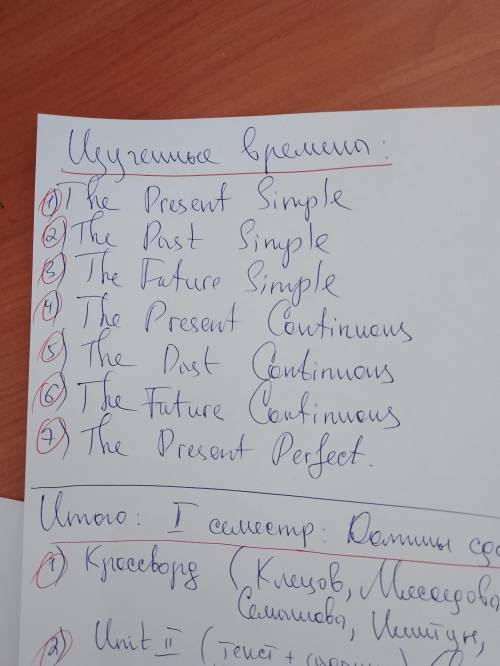 Изученные времены:
1) The Present Simple
2) The Past Simple
3) The Future Simple
4) The Present Continuous
5) The Past Continuous
6) The Future Continuous
7) The Present Perfect.
Итого: I семестр: Должны
1) Кроссворд (Клецов,
2) Unit II (текст +